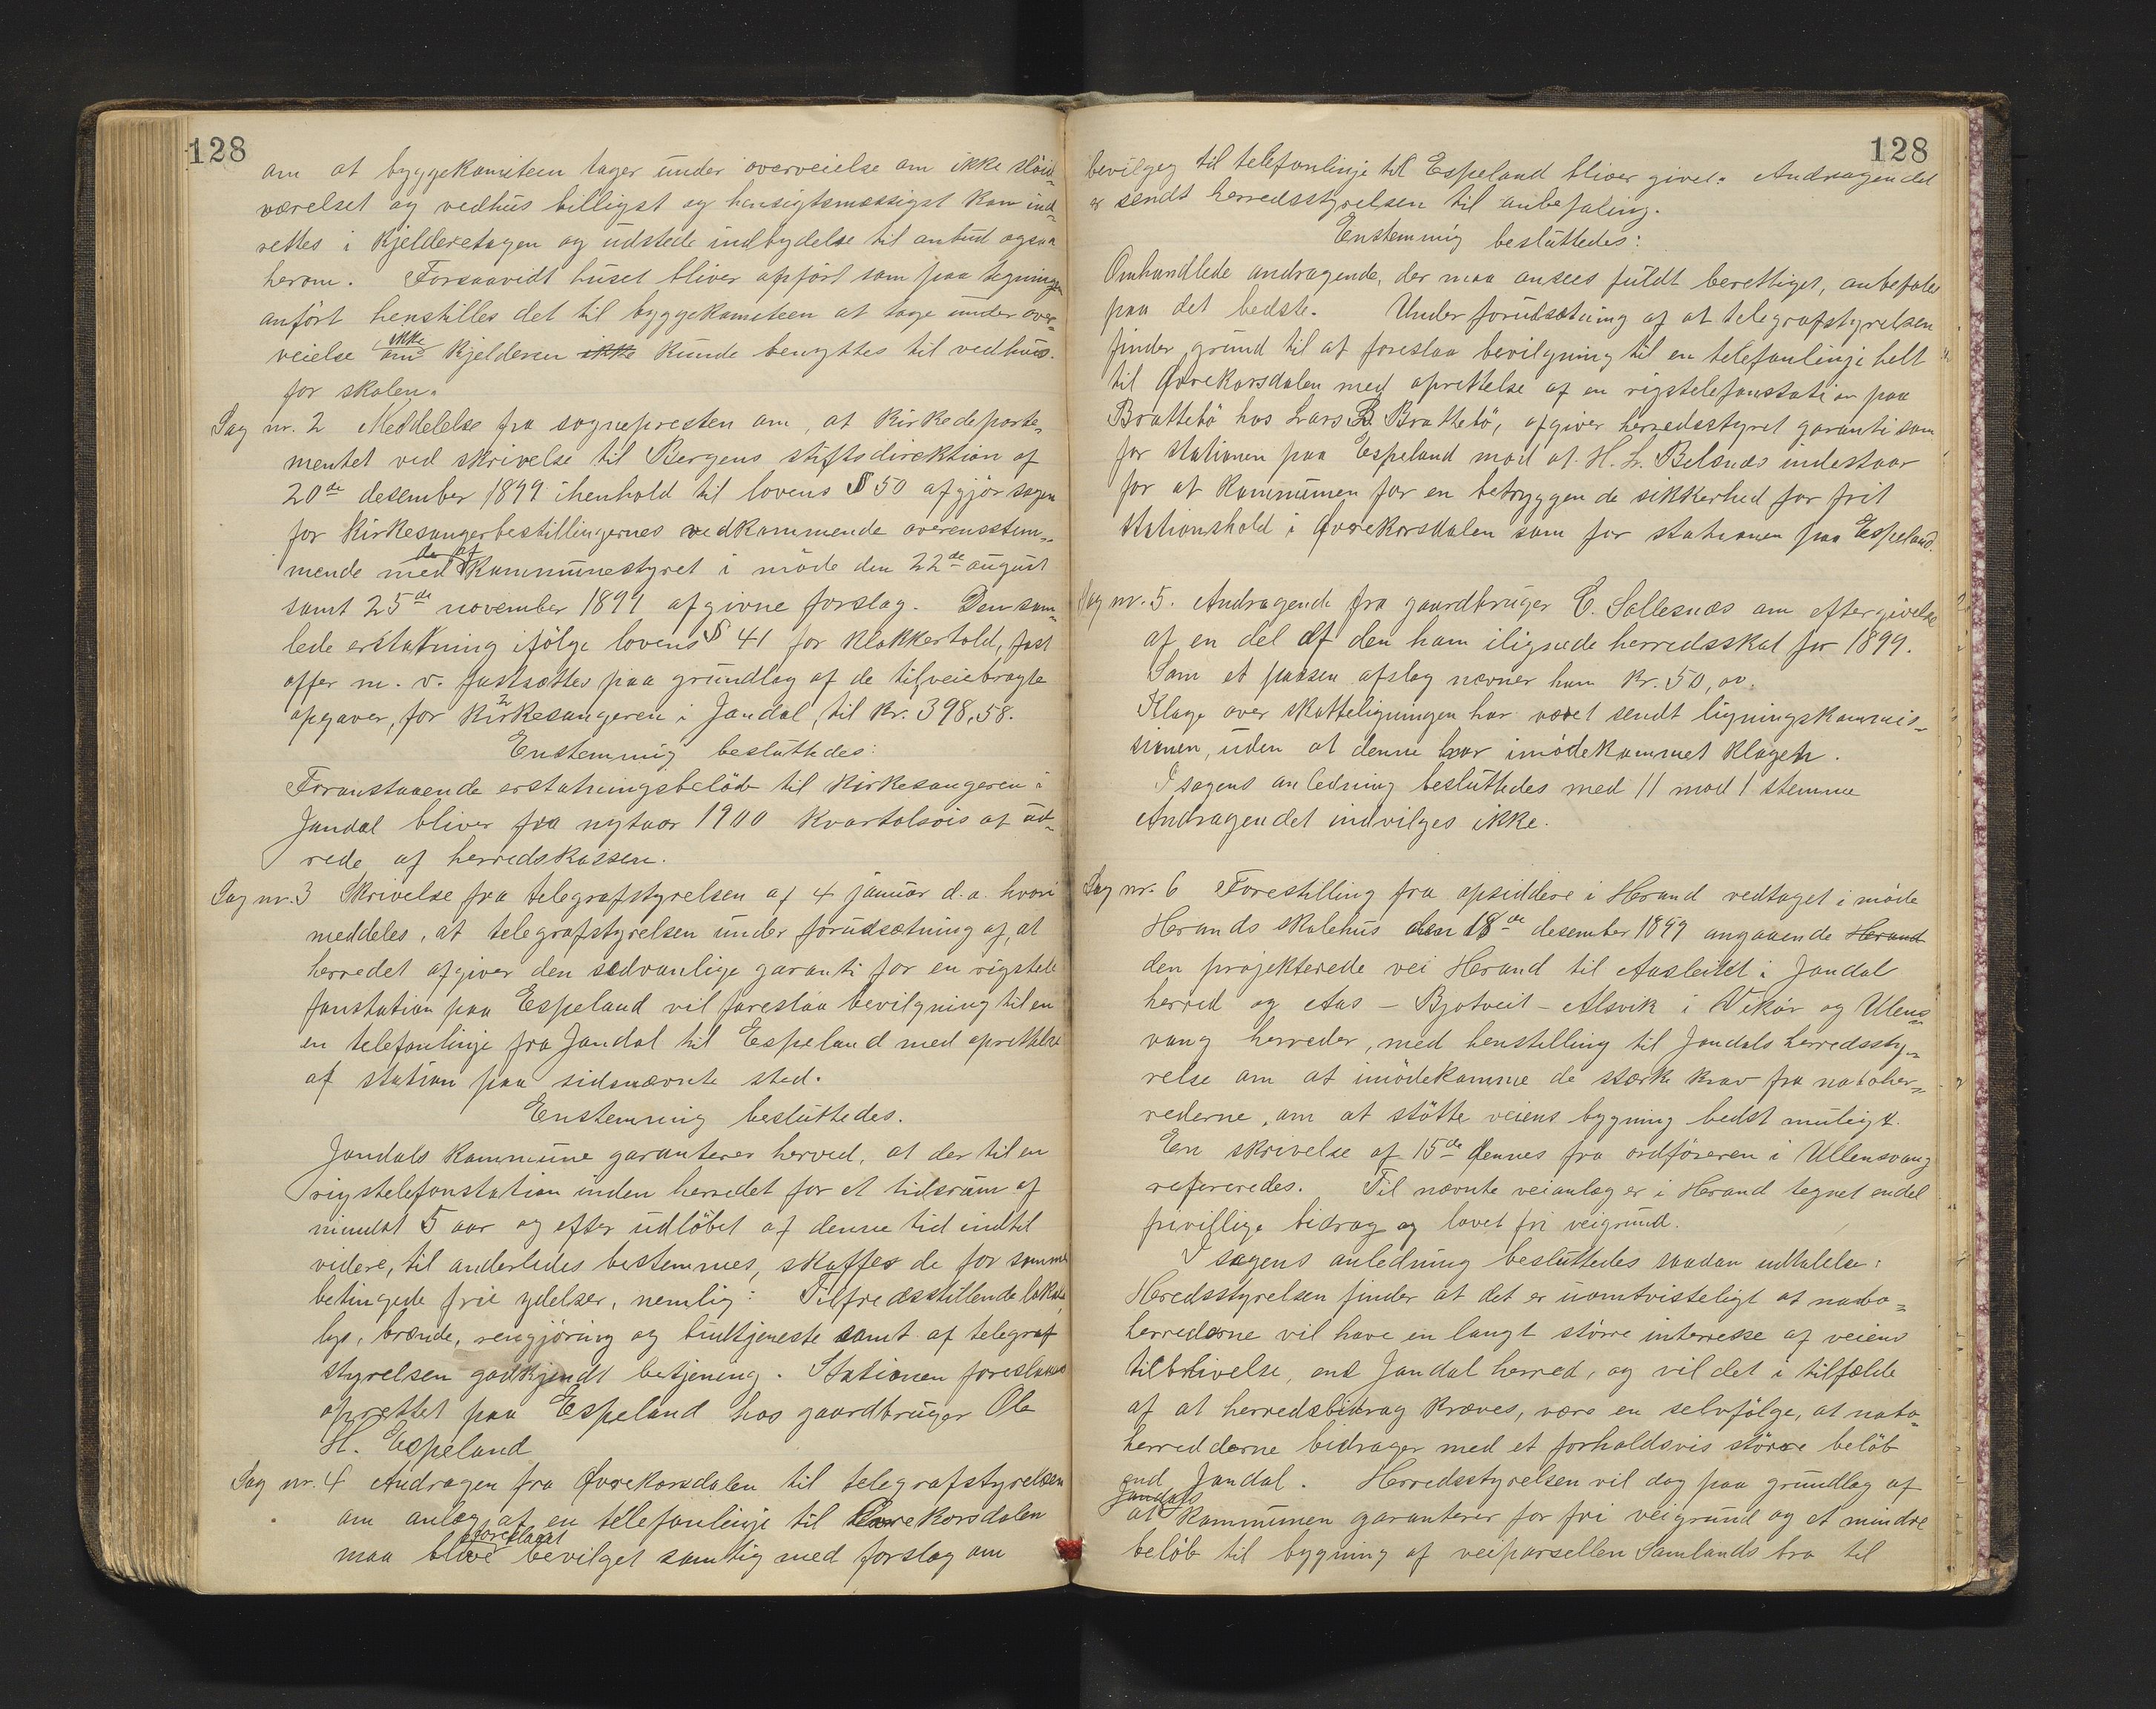 128
om at byggekomiteen tager under overveielse om ikke slöid-
værelset og vedhus billigst og hensigtsmæssigst kan ind-
rettes i kjelderetagen og udstede indbydelse til anbud ogsaa
herom. Forsaavidt huset bliver opfört som paa tegningen
anfört henstilles det til byggekomiteen at tage under over-
veielse om ikke kjelderen ikke kunde benyttes til vedhus
for skolen.
Sag nr. 2 Meddelelse fra sognepresten om, at kirkedeparte-
mentet ved skrivelse til Bergens stiftsdirektion af
20de desember 1899 i henhold til lovens § 50 afgjör sagen
for kirkesangerbestillingernes vedkommende overensstem-
mende med de af kommunestyret i möde den 22de august
samt 25de november 1899 afgivne forslag. Den sam-
lede erstatning ifölge lovens § 41 for klokkertold, fast
offer m. v. fastsættes paa grundlag af de tilveiebragte
opgaver, for kirkesangeren i Jondal, til kr. 398,58.
Enstemmig besluttedes:
Foranstaaende erstatningsbelöb til kirkesangeren i
Jondal bliver fra nytaar 1900 kvartalsvis at ud-
rede af herredskassen.
Sag nr. 3 Skrivelse fra telegrafstyrelsen af 4 januar d.a. hvori
meddeles, at telegrafstyrelsen under forudsætning af, at
herredet afgiver den sedvanlige garanti for en rigstele
fonstation paa Espeland vil foreslaa bevilgning til en
en telefonlinje fra Jondal til Espeland med oprettelse
af station paa sidsnævnte sted.
Enstemmig besluttedes.
Jondals kommune garanterer herved, at der til en
rigstelefonstation inden herredet for et tidsrum af
mindst 5 aar og efter udlöbet af denne tid indtil
videre, til anderledes bestemmes, skaffes de for samme
betingede frie ydelser, nemlig: Tilfredsstillende lokale,
lys, brænde, rengjöring og budtjeneste samt af telegraf
styrelsen godkjendt betjening. Stationen foreslaaes
oprettet paa Espeland hos gaardbruger Ola
H. Espeland
Sag nr. 4 Andragen fra Övrekorsdalen til telegrafstyrelsen
om anlæg af en telefonlinje til Övrekorsdalen
maa blive foreslaaet bevilget samtig med forslag om
128
bevilgng til telefonlinje til Espeland bliver givet. Andragendet
er sendt herredsstyrelsen til anbefaling.
Enstemmig besluttedes:
Omhandlede andragende, der maa ansees fuldt berettiget, anbefales
paa det bedste. Under forudsætning af at telegrafstyrelsen
finder grund til at foreslaa bevilgning til en telefonlinje helt
til Övrekorsdalen med oprettelse af en rigstelefonstation paa
Brattebö hos Lars B Brattebö, afgiver herredsstyret garanti som
for stationen paa Espeland mod at H. L. Belsnes indestaar
for at kommunen faar en betryggende sikkerhed for frit
stationshold i Övrekorsdalen som for stationen paa Espeland.
Sag nr. 5. Andragende fra gaardbruger E. Sollesnæs om eftergivelse
af en del af den ham ilignede herredsskat for 1899.
Som et passen afslag nævner han kr. 50,00.
Klage over skatteligningen har været sendt ligningskommis-
sionen, uden at denne har imödekommet klagen.
I sagens anledning besluttedes med 11 mod 1 stemme
Andragendet indvilges ikke.
Sag nr. 6 Forestilling fra opsiddere i Herand vedtaget i möde
Herands skolehus den 18de desember 1899 angaaende Herand
den projekterede vei Herand til Aasleitet i Jondal
herred og Aas – Bjotveit – Alsvik i Vikör og Ulens-
vang herreder, med henstilling til Jondals herredssty-
relse om at imödekomme de stærke krav fra naboher-
rederne, om at stötte veiens bygning bedst muligt.
En skrivelse af 15de dennes fra ordföreren i Ullensvang
refereredes. Til nævnte veianlæg er i Herand tegnet endel
frivillige bidrag og lovet fri veigrund.
I sagens anledning besluttedes saadan udtalelse:
Heredsstyrelsen finder at det er uomtvisteligt at nabo-
herrederne vil have en langt större interesse af veiens
tilblivelse, end Jondal herred, og vil det i tilfælde
af at herredsbidrag kræves, være en selvfölge, at nabo-
herredderne bidrager med et forholdsvis större belöb
end Jondal. Herredsstyrelsen vil dog paa grundlag af
at Jondals kommunen garanterer for fri veigrund og et mindre
belöb til bygning af veiparsellen Samlands bro til